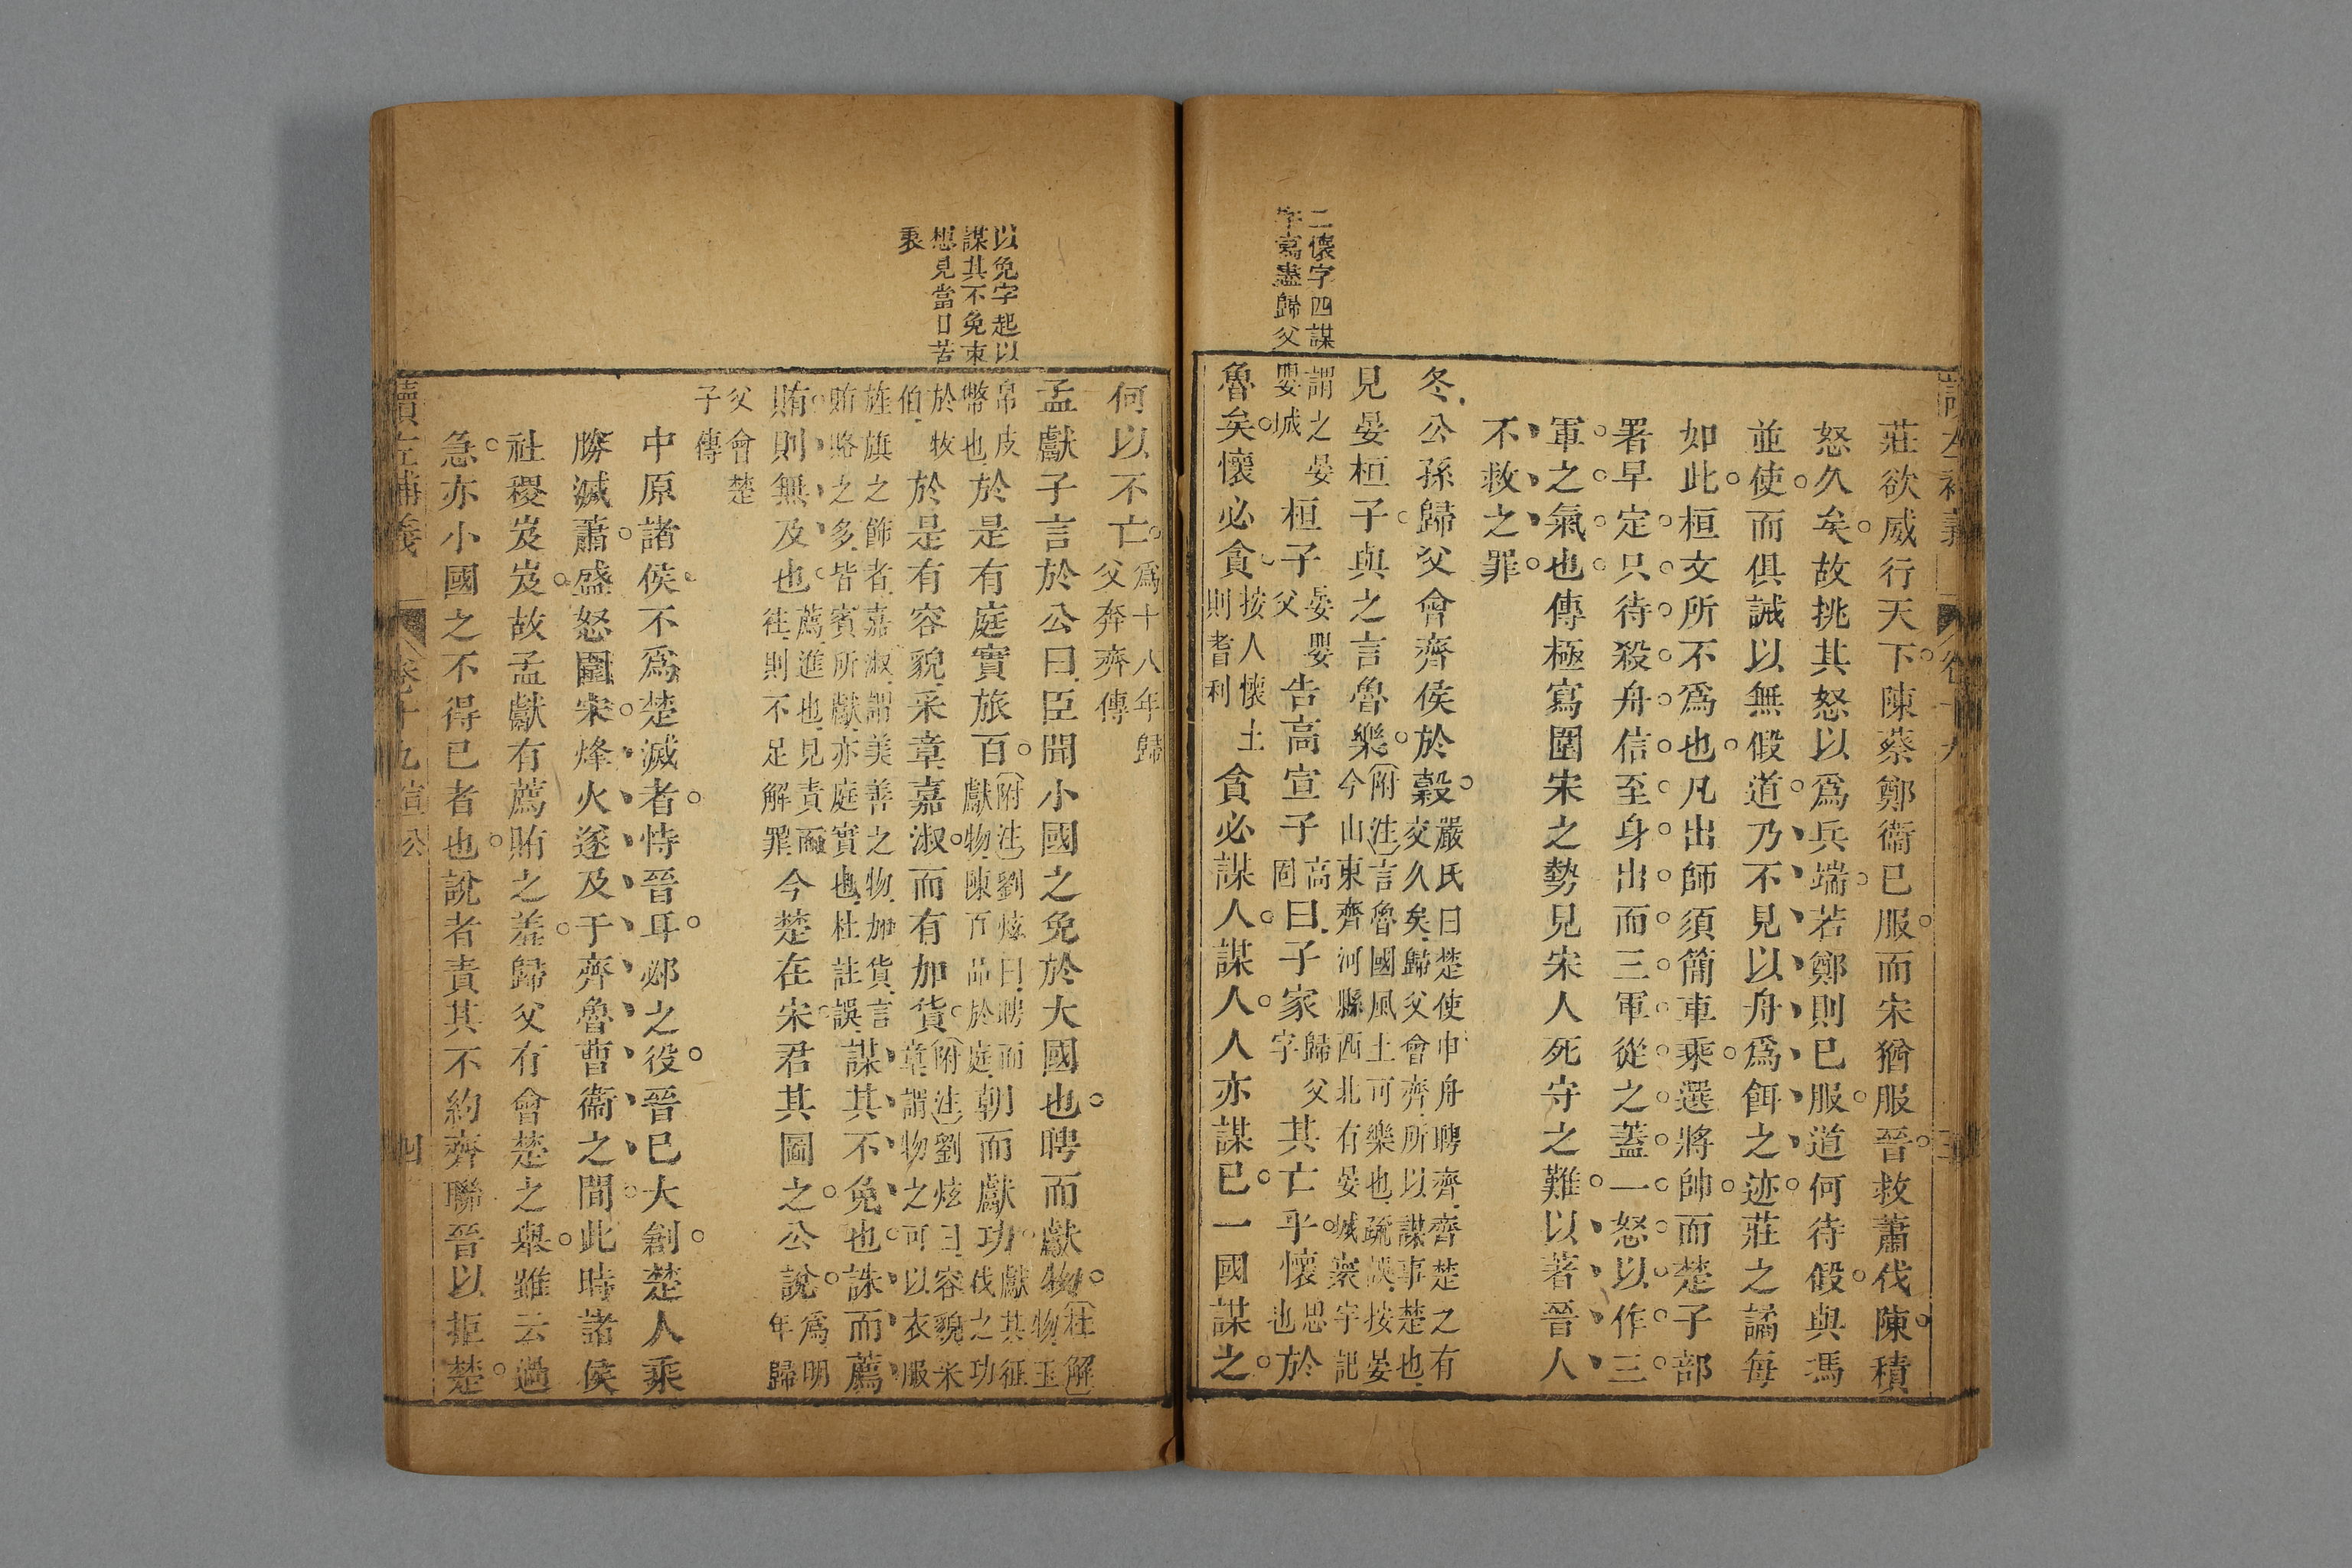 莊欲威行天下陳蔡鄭衞已服而宋猶服晉救蕭伐陳積
怒久矣故挑其怒以爲兵端若鄭則已服道何待假與馮
並使而俱誡以無假道乃不見以舟爲餌之迹莊之譎每
如此桓文所不爲也凡出師須簡車乘選將帥而楚子部
署早定只待殺舟信至身出而三軍從之蓋一怒以作三
軍之氣也傳極寫圍宋之勢見宋人死守之難以著晉人
不救之罪
冬公孫歸父會齊侯於穀嚴氏曰楚使申舟聘齊齊楚之有交久矣歸父會齊所以謀事楚也
見晏桓子與之言魯樂附注言魯國風土可樂也疏誤按晏今山東齊河縣西北有晏城寰宇記
謂之晏嬰城桓子晏嬰父告高宣子高固曰子家歸父字其亡乎懷思也於
魯矣懷必貪按人懷土則耆利貪必謀人謀人人亦謀已一國謀之
二懷字四謀
字寫盡歸父
何以不亡爲十八年歸父奔齊傳
孟獻子言於公曰臣聞小國之免於大國也聘而獻物杜解物玉
帛皮幣也於是有庭實旅百附注劉炫曰聘而獻物陳百品於庭朝而獻功獻其征伐之功
於牧伯於是有容貌采章嘉淑而有加貨附注劉炫曰容貌采章謂物之可以衣服
旌旗之飾者嘉淑謂美善之物加貨言賄賂之多皆賓所獻亦庭實也杜註誤謀其不免也誅而薦
賄則無及也薦進也見責而往則不足解罪今楚在宋君其圖之公說爲明年歸
父會楚子傳
中原諸侯不爲楚滅者恃晉耳邲之役晉已大創楚人乘
勝滅蕭盛怒圍宋烽火遂及于齊魯曹衞之間此時諸侯
社稷岌岌故孟獻有薦賄之羞歸父有會楚之舉雖云過
急亦小國之不得已者也說者責其不約齊聯晉以拒楚
以免字起以
謀其不免束
想見當日苦
衷
讀左補義
卷十九宣公
四